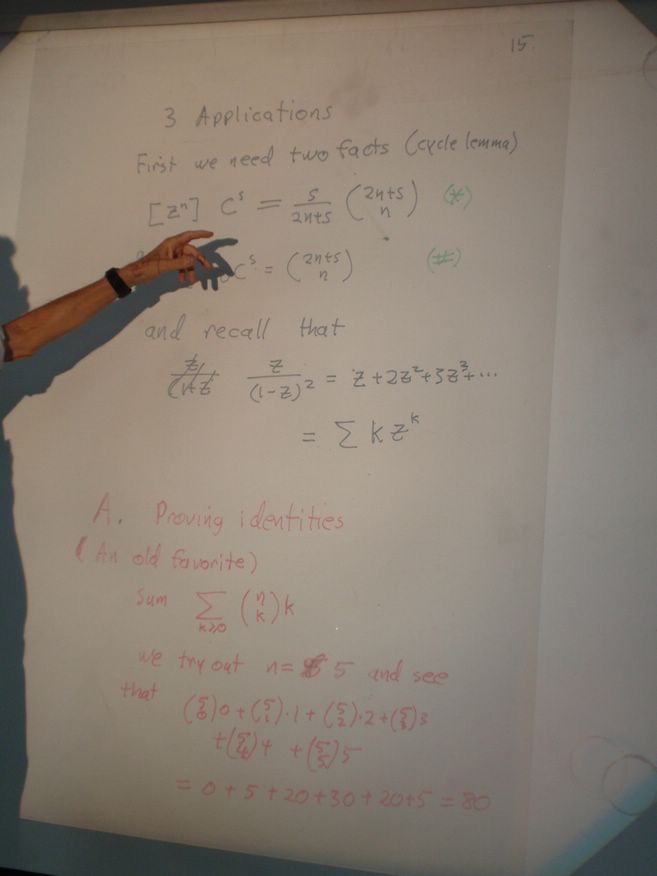 15.
3 Applications
First we need two facts (cycle lemma)
[zⁿ] Cˢ = s/(2n+s) (2n+s n) (*)
Cˢ = (2n+s n) (#)
and recall that
z/(1-z)² = z + 2z² + 3z³ + ...
= Σ k zᵏ
A. Proving identities
(An old favorite)
Sum Σ k≥0 (n k) k
we try out n = 5 and see
that (5 0)0 + (5 1)·1 + (5 2)·2 + (5 3)3
+ (5 4)4 + (5 5)5
= 0 + 5 + 20 + 30 + 20 + 5 = 80